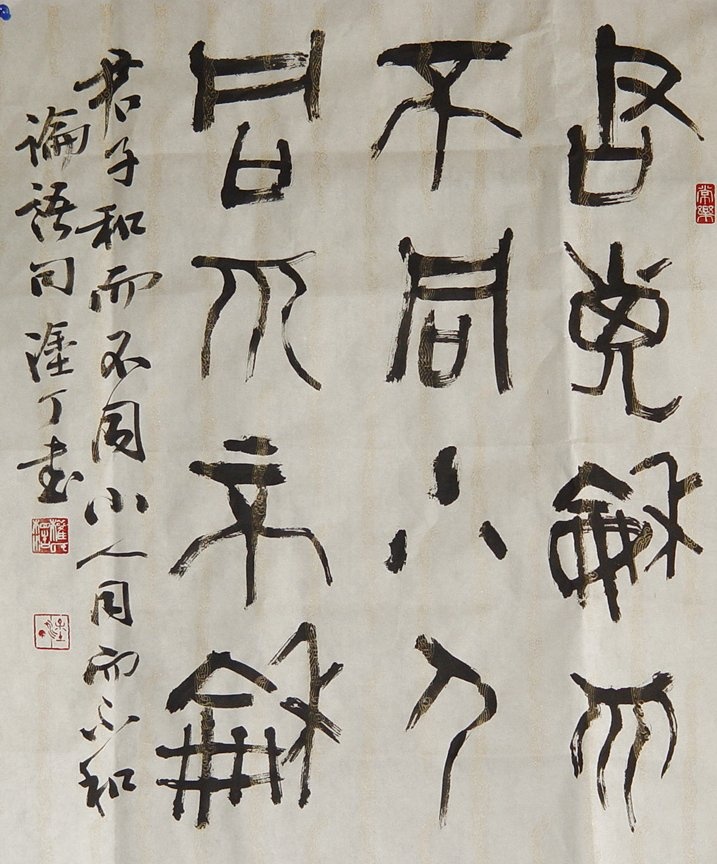 君子和而
不同小人
同而不和
君子和而不同小人同而不和
論語句塗丁書
常樂